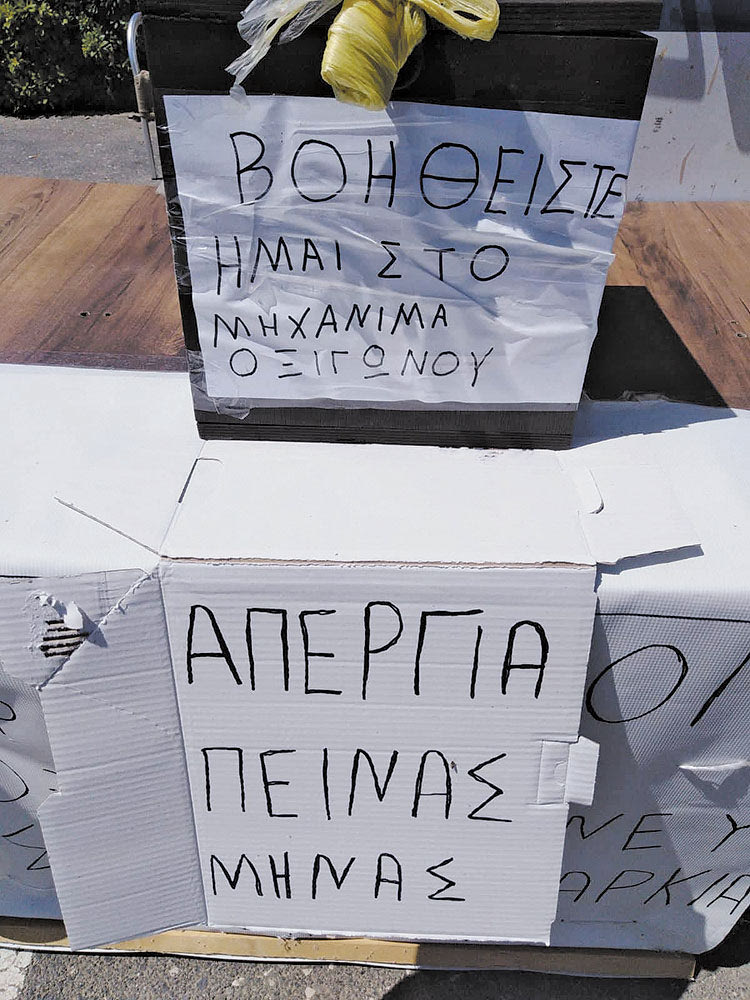 ΒΟΗΘΕΙΣΤΕ
ΗΜΑΙ ΣΤΟ
ΜΗΧΑΝΙΜΑ
ΟΞΙΓΩΝΟΥ
ΑΠΕΡΓΙΑ
ΠΕΙΝΑΣ
ΜΗΝΑΣ